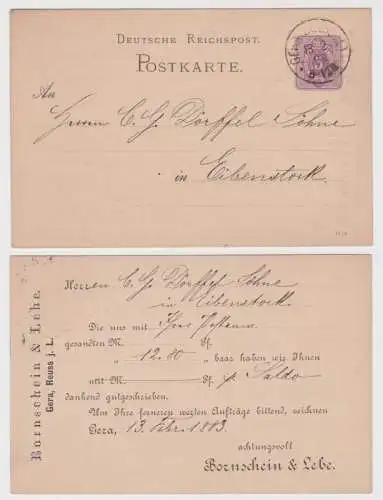 Deutsche Reichspost.
Postkarte.
An
Herren C. G. Dörffel Söhne
in Eibenstock.
Bornschein & Lebe.
Gera, Reuss j. L.
Herren C. G. Dörffel Söhne
in Eibenstock.
Die uns mit Ihre
gesandten M. Pf.
" 12.80 " baar haben wir Ihnen
mit M. Pf. p. Saldo
dankend gutgeschrieben.
Um Ihre ferneren werthen Aufträge bittend, zeichnen
Gera, 13. Febr. 1883.
achtungsvoll
Bornschein & Lebe.